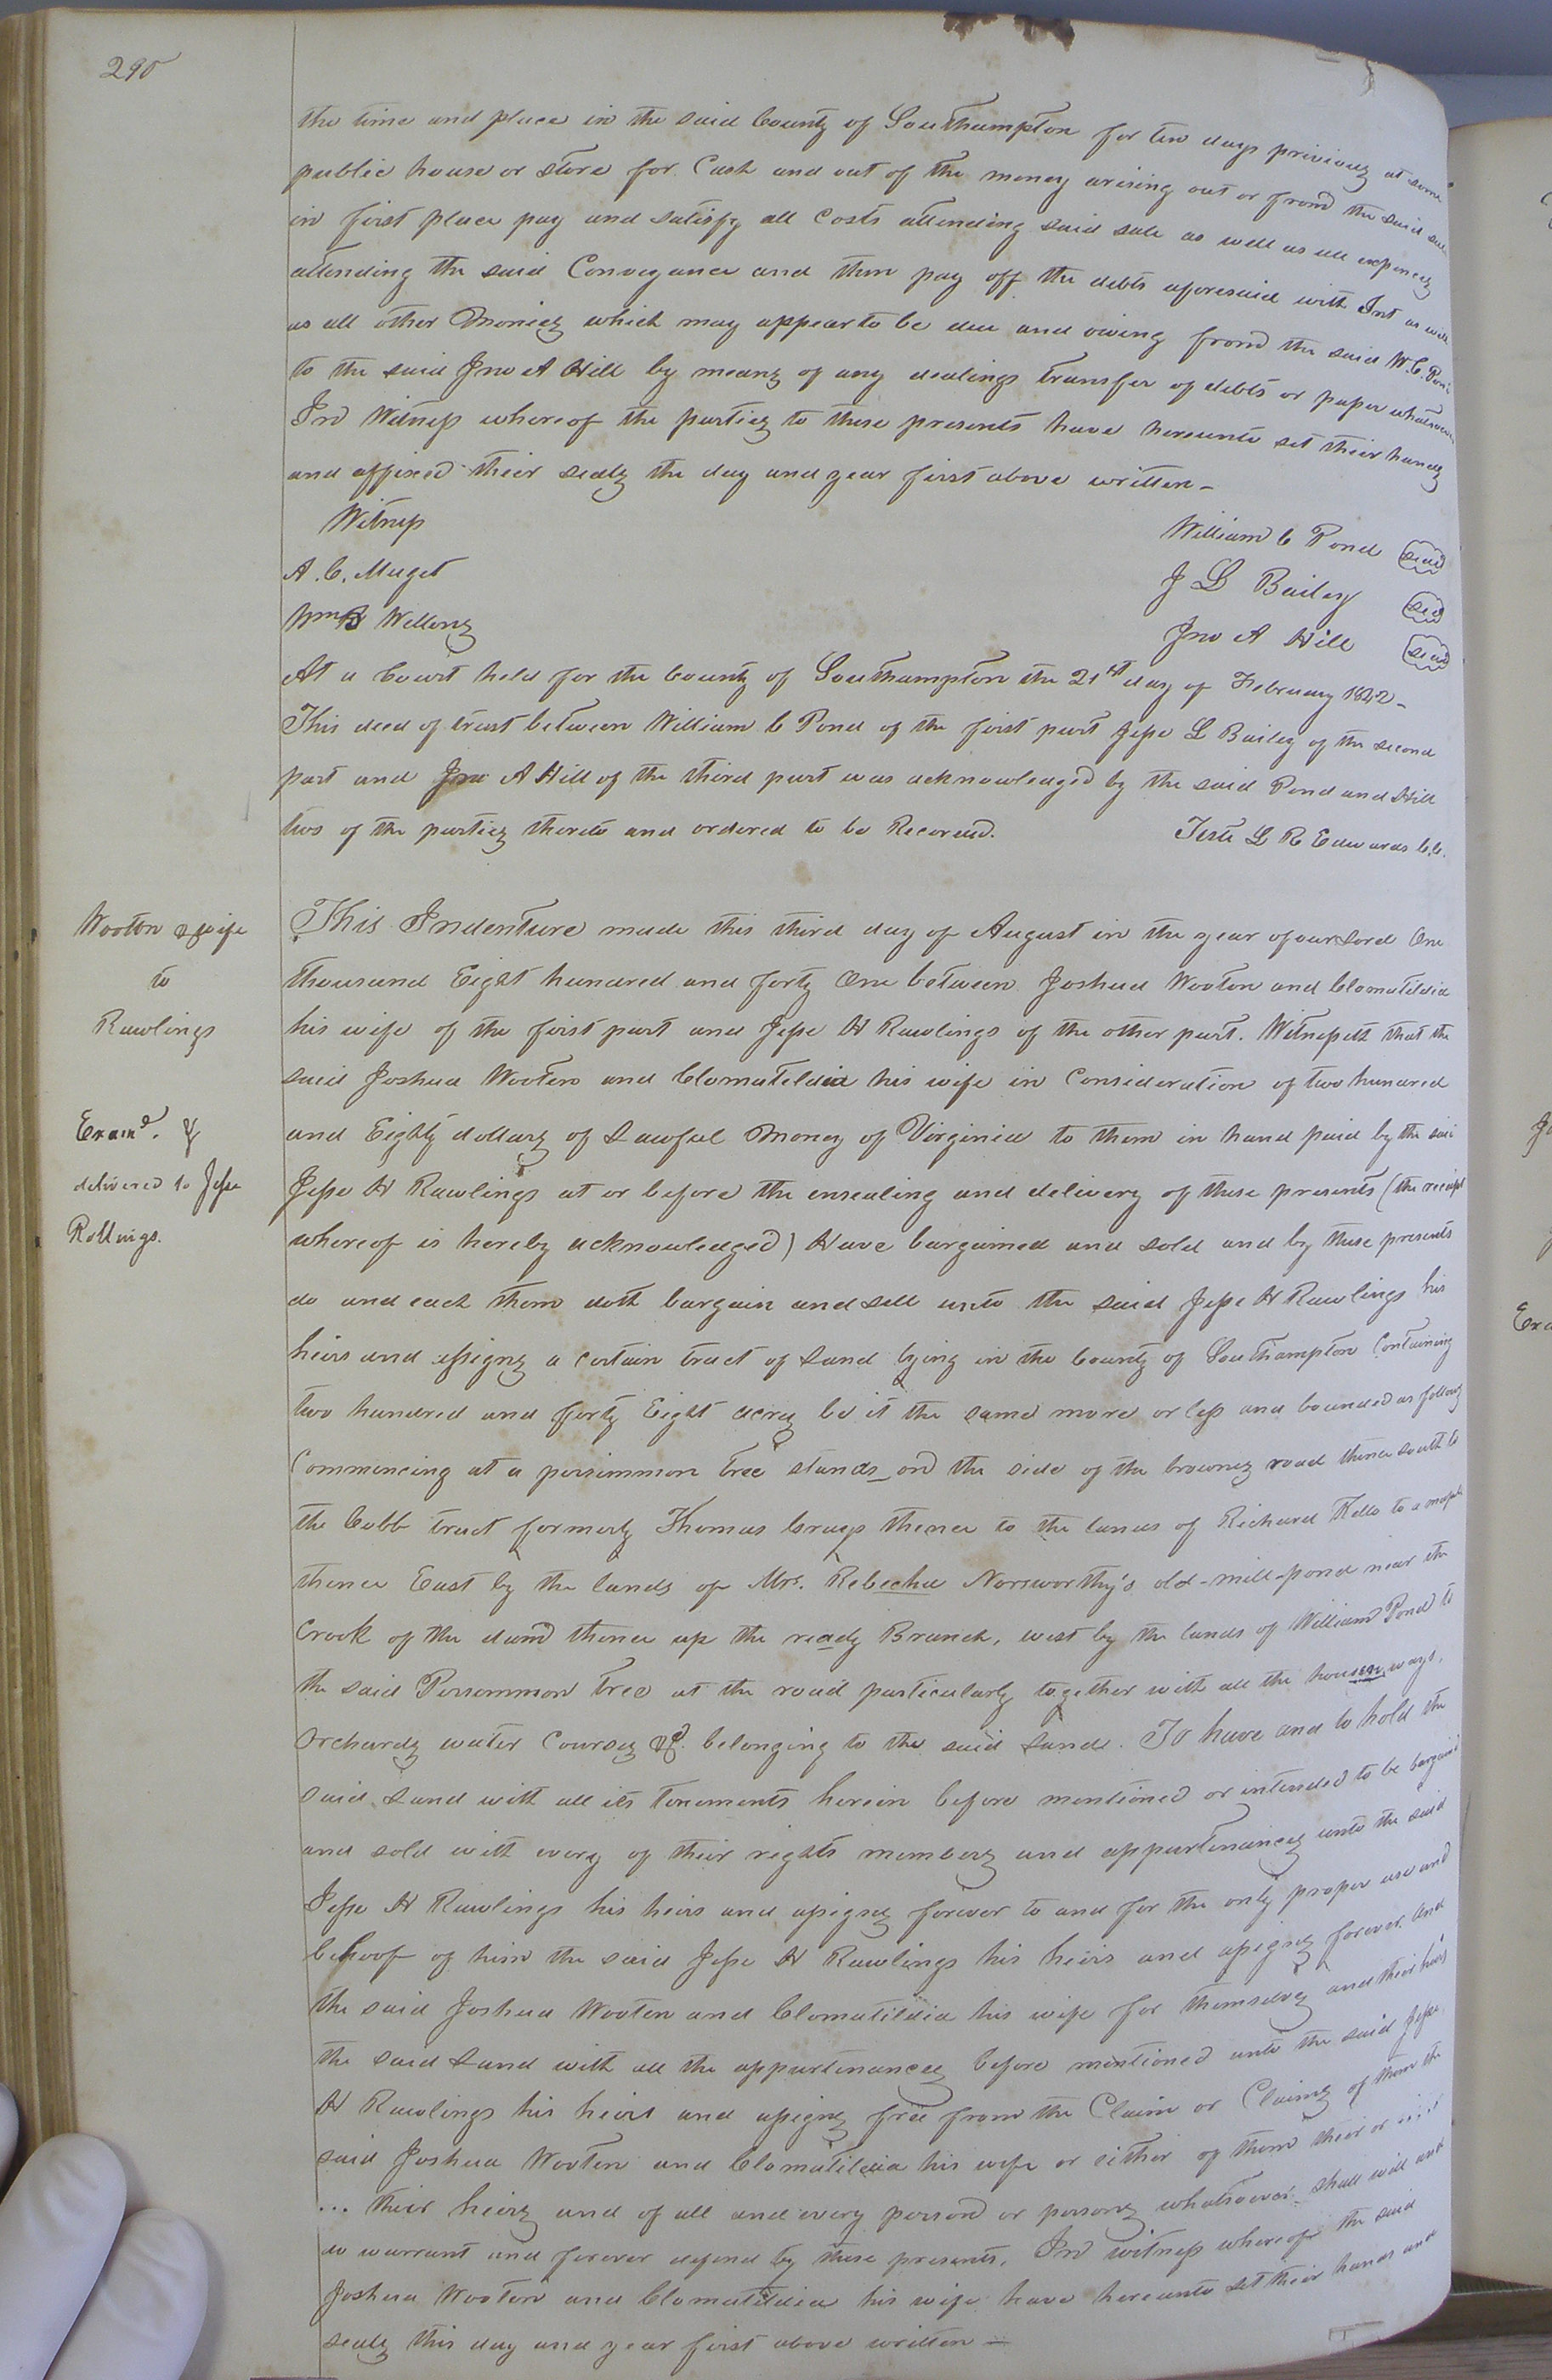 290
the time and place in the said County of Southampton for ten days priviouz at some
public house or store for Cash and out of the money arising out or from the said sale
in first place pay and satisfy all Costs attending said sale as well as all expences
attending the said Conveyance and then pay off the debts aforesaid with Int as well
as all other Monies which may appear to be due and owing from the said W. C. Pond
to the said Jno A Hill by means of any dealings transfer of debts or paper whatsoever
In Witness whereof the parties to these presents have hereunto set their hands
and affixed their seals the day and year first above written –
Witness
William C Pond seal
A. C. Muget
J L Bailey seal
Wm B Wellons
Jno A Hill seal
At a Court held for the County of Southampton the 21st day of February 1842 –
This deed of trust between William C Pond of the first part Jesse L Bailey of the second
part and Jno A Hill of the third part was acknowledged by the said Pond and Hill
two of the parties thereto and ordered to be Recorded.
Teste L R Edwards C.C.
Wooten & wife
to
Rawlings
Examd. &
delivered to Jesse
Rollings.
This Indenture made this third day of August in the year of our Lord One
thousand Eight hundred and forty One between Joshua Wooten and Clomatildia
his wife of the first part and Jesse H Rawlings of the other part. Witnesseth that the
said Joshua Wooten and Clomatildia his wife in Consideration of two hundred
and Eighty dollars of Lawful Money of Virginia to them in hand paid by the said
Jesse H Rawlings at or before the ensealing and delivery of these presents (the receipt
whereof is hereby acknowledged) Have bargained and sold and by these presents
do and each them doth bargain and sell unto the said Jesse H Rawlings his
heirs and assigns a certain tract of Land lying in the County of Southampton Containing
two hundred and forty Eight acres be it the same more or less and bounded as follows
Commencing at a persimmon tree stands on the side of the browns road thence south to
the Cobb tract formerly Thomas Grays thence to the lands of Richard Kello to a maple
thence East by the lands of Mrs. Rebecha Norsworthy's old-mill-pond near the
Crook of the dam thence up the ready Branch, west by the lands of William Pond to
the said Persommon tree at the road particularly together with all the housen ways,
Orchards water Courses &c belonging to the said Land. To have and to hold the
said Land with all its tenements herein before mentioned or intended to be bargained
and sold with every of their rights members and appurtenances unto the said
Jesse H Rawlings his heirs and assigns forever to and for the only proper use and
behoof of him the said Jesse H Rawlings his heirs and assigns forever. And
the said Joshua Wooten and Clomatildia his wife for themselves and their heirs
the said Land with all the appurtenances before mentioned unto the said Jesse
H Rawlings his heirs and assigns free from the Claim or Claims of them the
said Joshua Wooten and Clomatildia his wife or either of them their or ....
... their heirs and of all and every person or persons whatsoever shall will and
do warrant and forever defend by these presents. In witness whereof the said
Joshua Wooten and Clomatildia his wife have hereunto set their hands and
seals this day and year first above written –